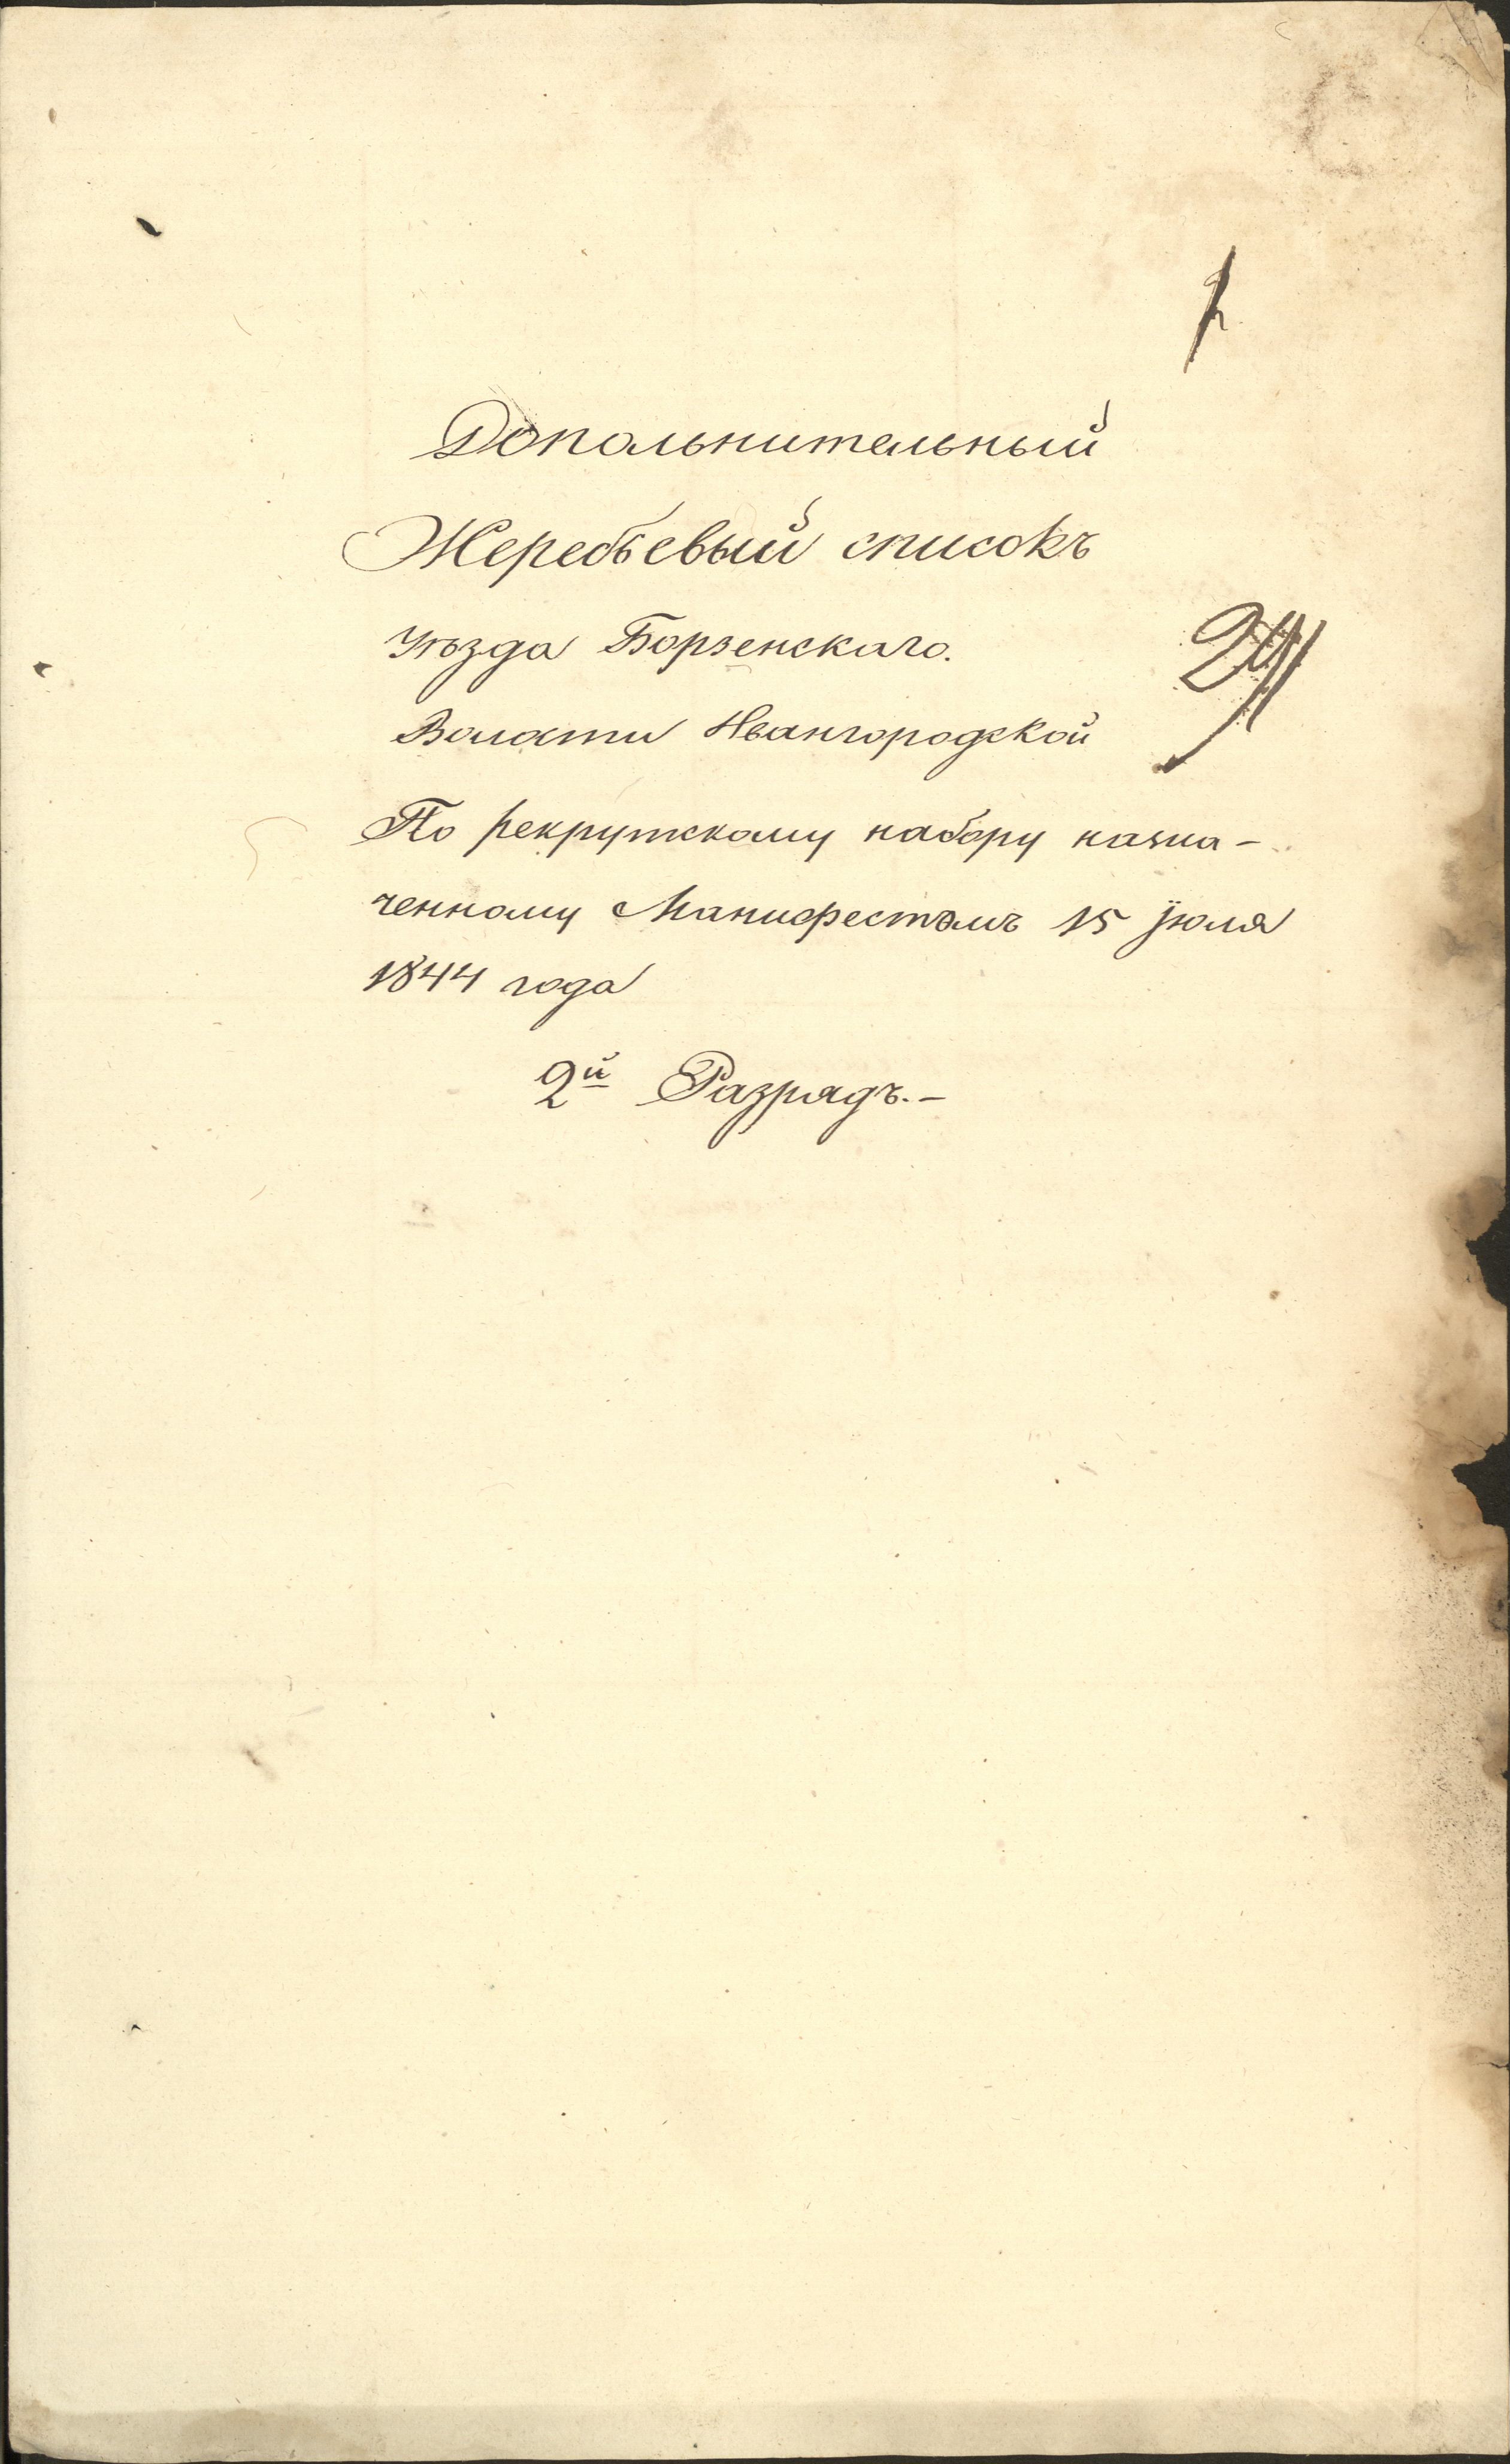 Допольнительный
Жеребьевый списокъ
Уѣзда Борзенскаго.
Волости Ивангородской
По рекрутскому набору назна-
ченному Манифестомъ 15 Іюля
1844 года
2й Разрядъ.-